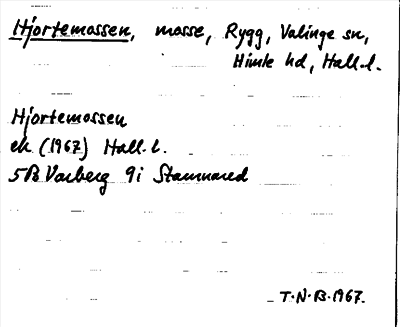 Hjortemossen, mosse, Rygg, Valinge sn,
Himle hd, Hall.l.
Hjortemossen
ek (1967) Hall.l.
5B Varberg 9i Stamnared
T.N.B.1967.